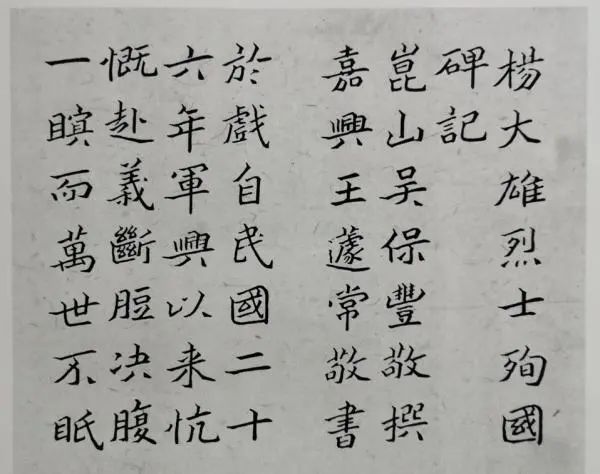 楊大雄烈士殉國
碑記
崑山吳保豐敬撰
嘉興王蘧常敬書
於戲自民國二十
六年軍興以来忼
慨赴義斷脰决腹
一瞑而萬世不眂